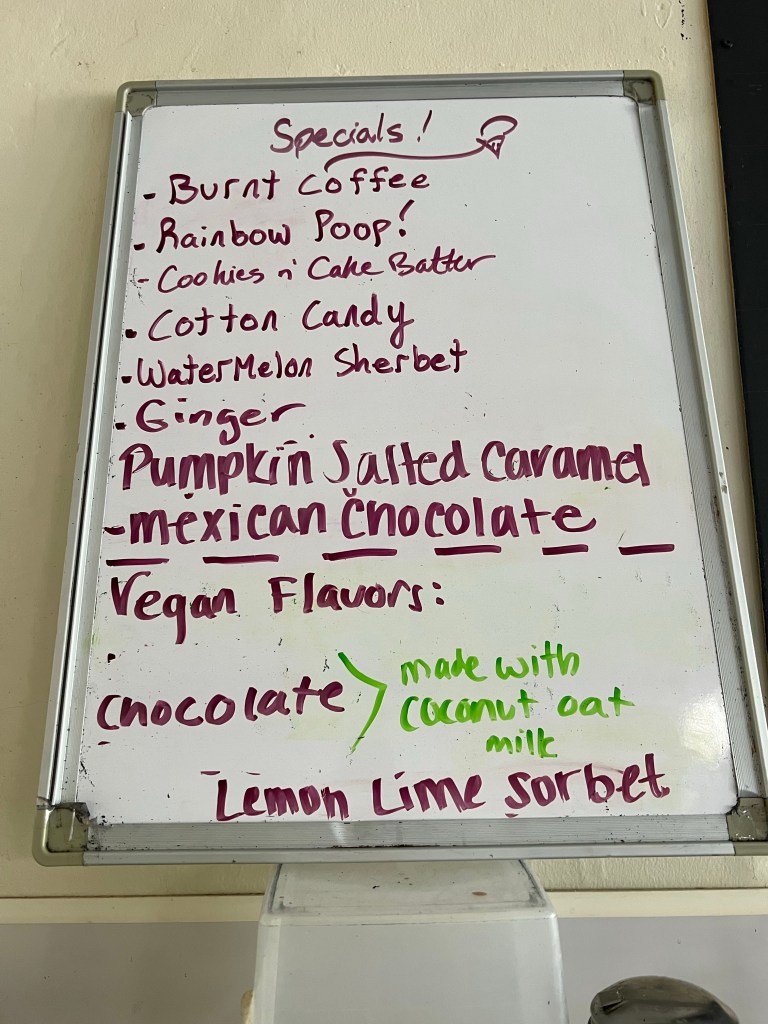 Specials!
- Burnt Coffee
- Rainbow Poop!
- Cookies n' Cake Batter
- Cotton Candy
- WaterMelon Sherbet
- Ginger
Pumpkin Salted Caramel
- mexican Chocolate
Vegan Flavors:
Chocolate > made with
coconut oat
milk
Lemon Lime Sorbet